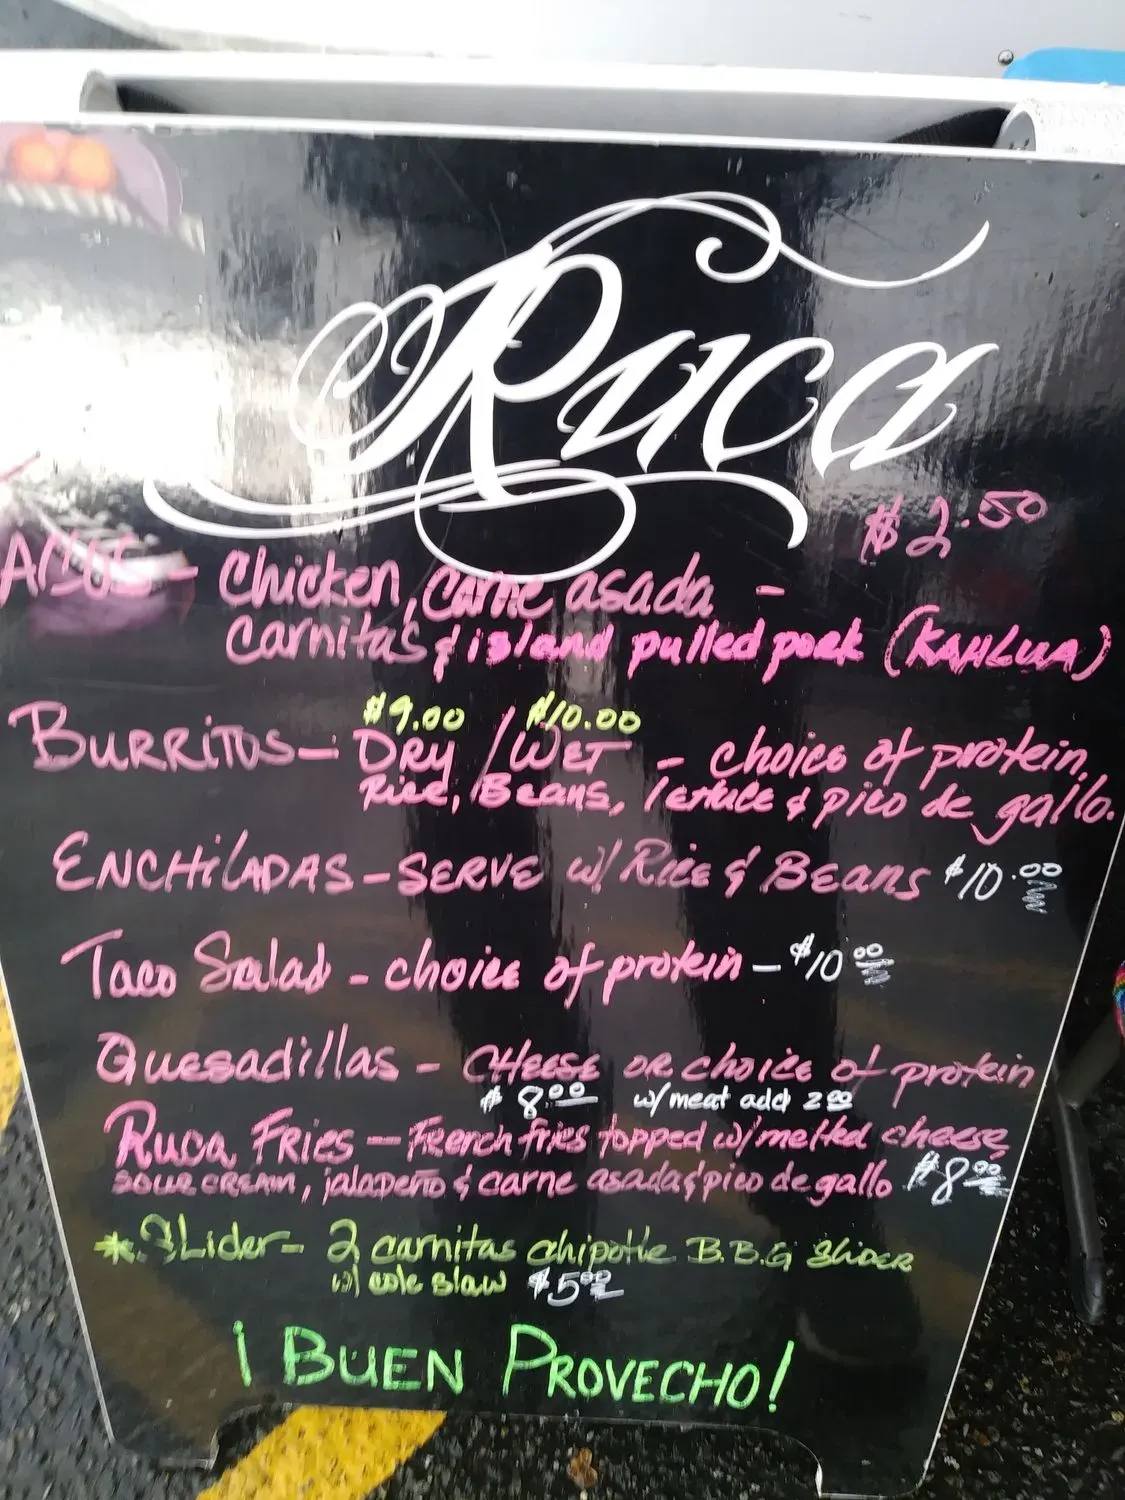 Ruca
$2.50
ACOS - Chicken, carne asada -
carnitas & island pulled pork (KAHLUA)
$9.00 / $10.00
BURRITOS - DRY / WET - choice of protein,
Rice, Beans, lettuce & pico de gallo.
ENCHILADAS - SERVE w/ Rice & Beans $10.00
Taco Salad - choice of protein - $10.00
Quesadillas - CHEESE OR choice of protein
$8.00 w/ meat add 2.00
Ruca FRIES - French fries topped w/ melted cheese,
SOUR CREAM, jalapeño & carne asada & pico de gallo $8.00
*SLider - 2 carnitas chipotle B.B.Q SLIDER
w/ cole slaw $5.00
¡BUEN PROVECHO!